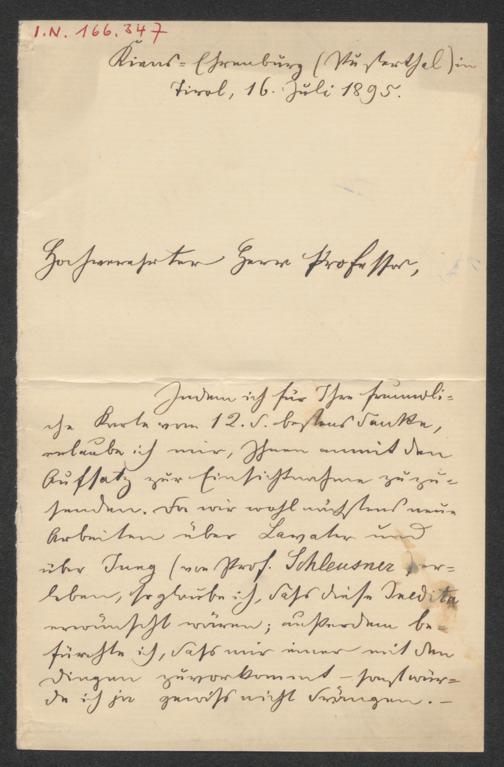 I.N. 166.347
Kiens-Ehrenburg (Pusterthal) in
Tirol, 16. Juli 1895.
Hochverehrter Herr Professor,
Indem ich für Ihre freundli-
che Karte vom 12. d. bestens danke,
erlaube ich mir, Ihnen anmit den
Aufsatz zur Einsichtnahme zuzu-
senden. Da wir wohl nächstens neue
Arbeiten über Lavater und
über Jung (von Prof. Schleusner) er-
leben, so glaube ich, dass diese Inedita
erwünscht wären; außerdem be-
fürchte ich, dass mir einer mit den
Dingen zuvorkommt – sonst wür-
de ich ja gewiss nicht drängen. –